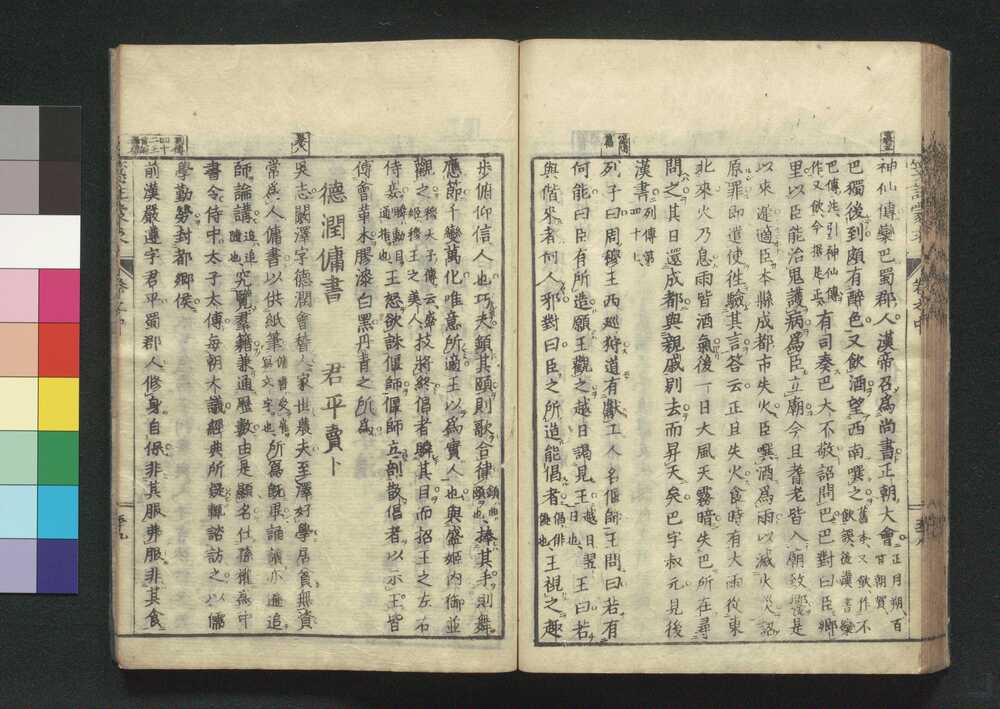 神仙傳欒巴蜀郡人漢帝召爲尚書正朝大會 正月朔百官朝賀
巴獨後到頗有醉色又飲酒望西南噀之 舊本又飲作不飲誤後漢書欒
巴傳註引神仙傳作又飲今據是正 有司奏巴大不敬詔問巴巴對曰臣鄉
里以臣能治鬼護病爲臣立廟今旦耆老皆入朝致饗是
以來遲適臣本縣成都市失火臣噀酒爲雨以滅火災詔
原罪即遣使徃驗其言荅云正旦失火食時有大雨從東
北來火乃息雨皆酒氣後一日大風天霧暗失巴所在尋
問之其日還成都與親戚別去而昇天矣巴字叔元見後
漢書 列傳第四十七
列子曰周穆王西廵狩道有獻工人名偃師王問曰若有
何能曰臣有所造願王觀之越日謁見王 越日翌日也 王曰若
與偕來者何人邪對曰臣之所造能倡者 倡俳優也 王視之趣
步俯仰信人也巧夫鎮其頤則歌合律 捧其手則舞
應節千變萬化唯意所適王以爲實人也與盛姬內御並
觀之 穆天子傳云盛姬穆王之美人 技將終倡者瞬其目而招王之左右
侍妾 瞬動目通指也 王怒欲誅偃師偃師立剖散倡者以示王皆
傅會革木膠漆白黑丹青之所爲
德潤傭書 君平賣卜
吳志闞澤字德潤會稽人家世農夫至澤好學居貧無資
常爲人傭書以供紙筆 所寫既畢誦讀亦遍追
師論講 追追隨也 究覽羣籍兼通曆數由是顯名仕孫權爲中
書令侍中太子太傅每朝大議經典所疑輒諮訪之以儒
學勤勞封都鄉侯
前漢嚴遵字君平蜀郡人修身自保非其服弗服非其食